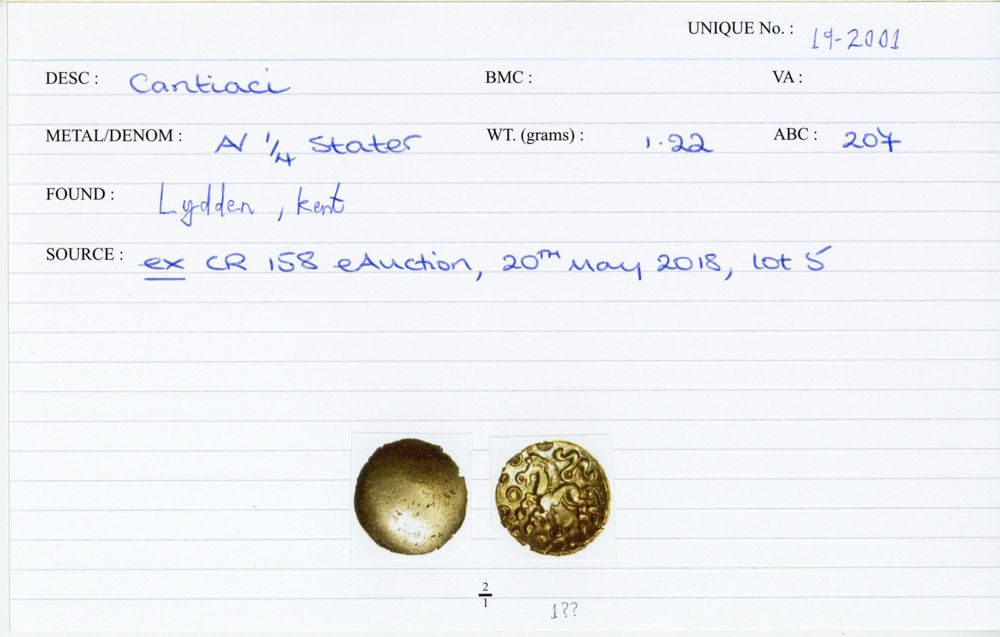 UNIQUE No. : 19-2001
DESC : Cantiaci BMC : VA :
METAL/DENOM : AV 1/4 Stater WT. (grams) : 1.22 ABC : 207
FOUND : Lydden, Kent
SOURCE : ex CR 158 eAuction, 20TH May 2018, lot 5
2
1
1??